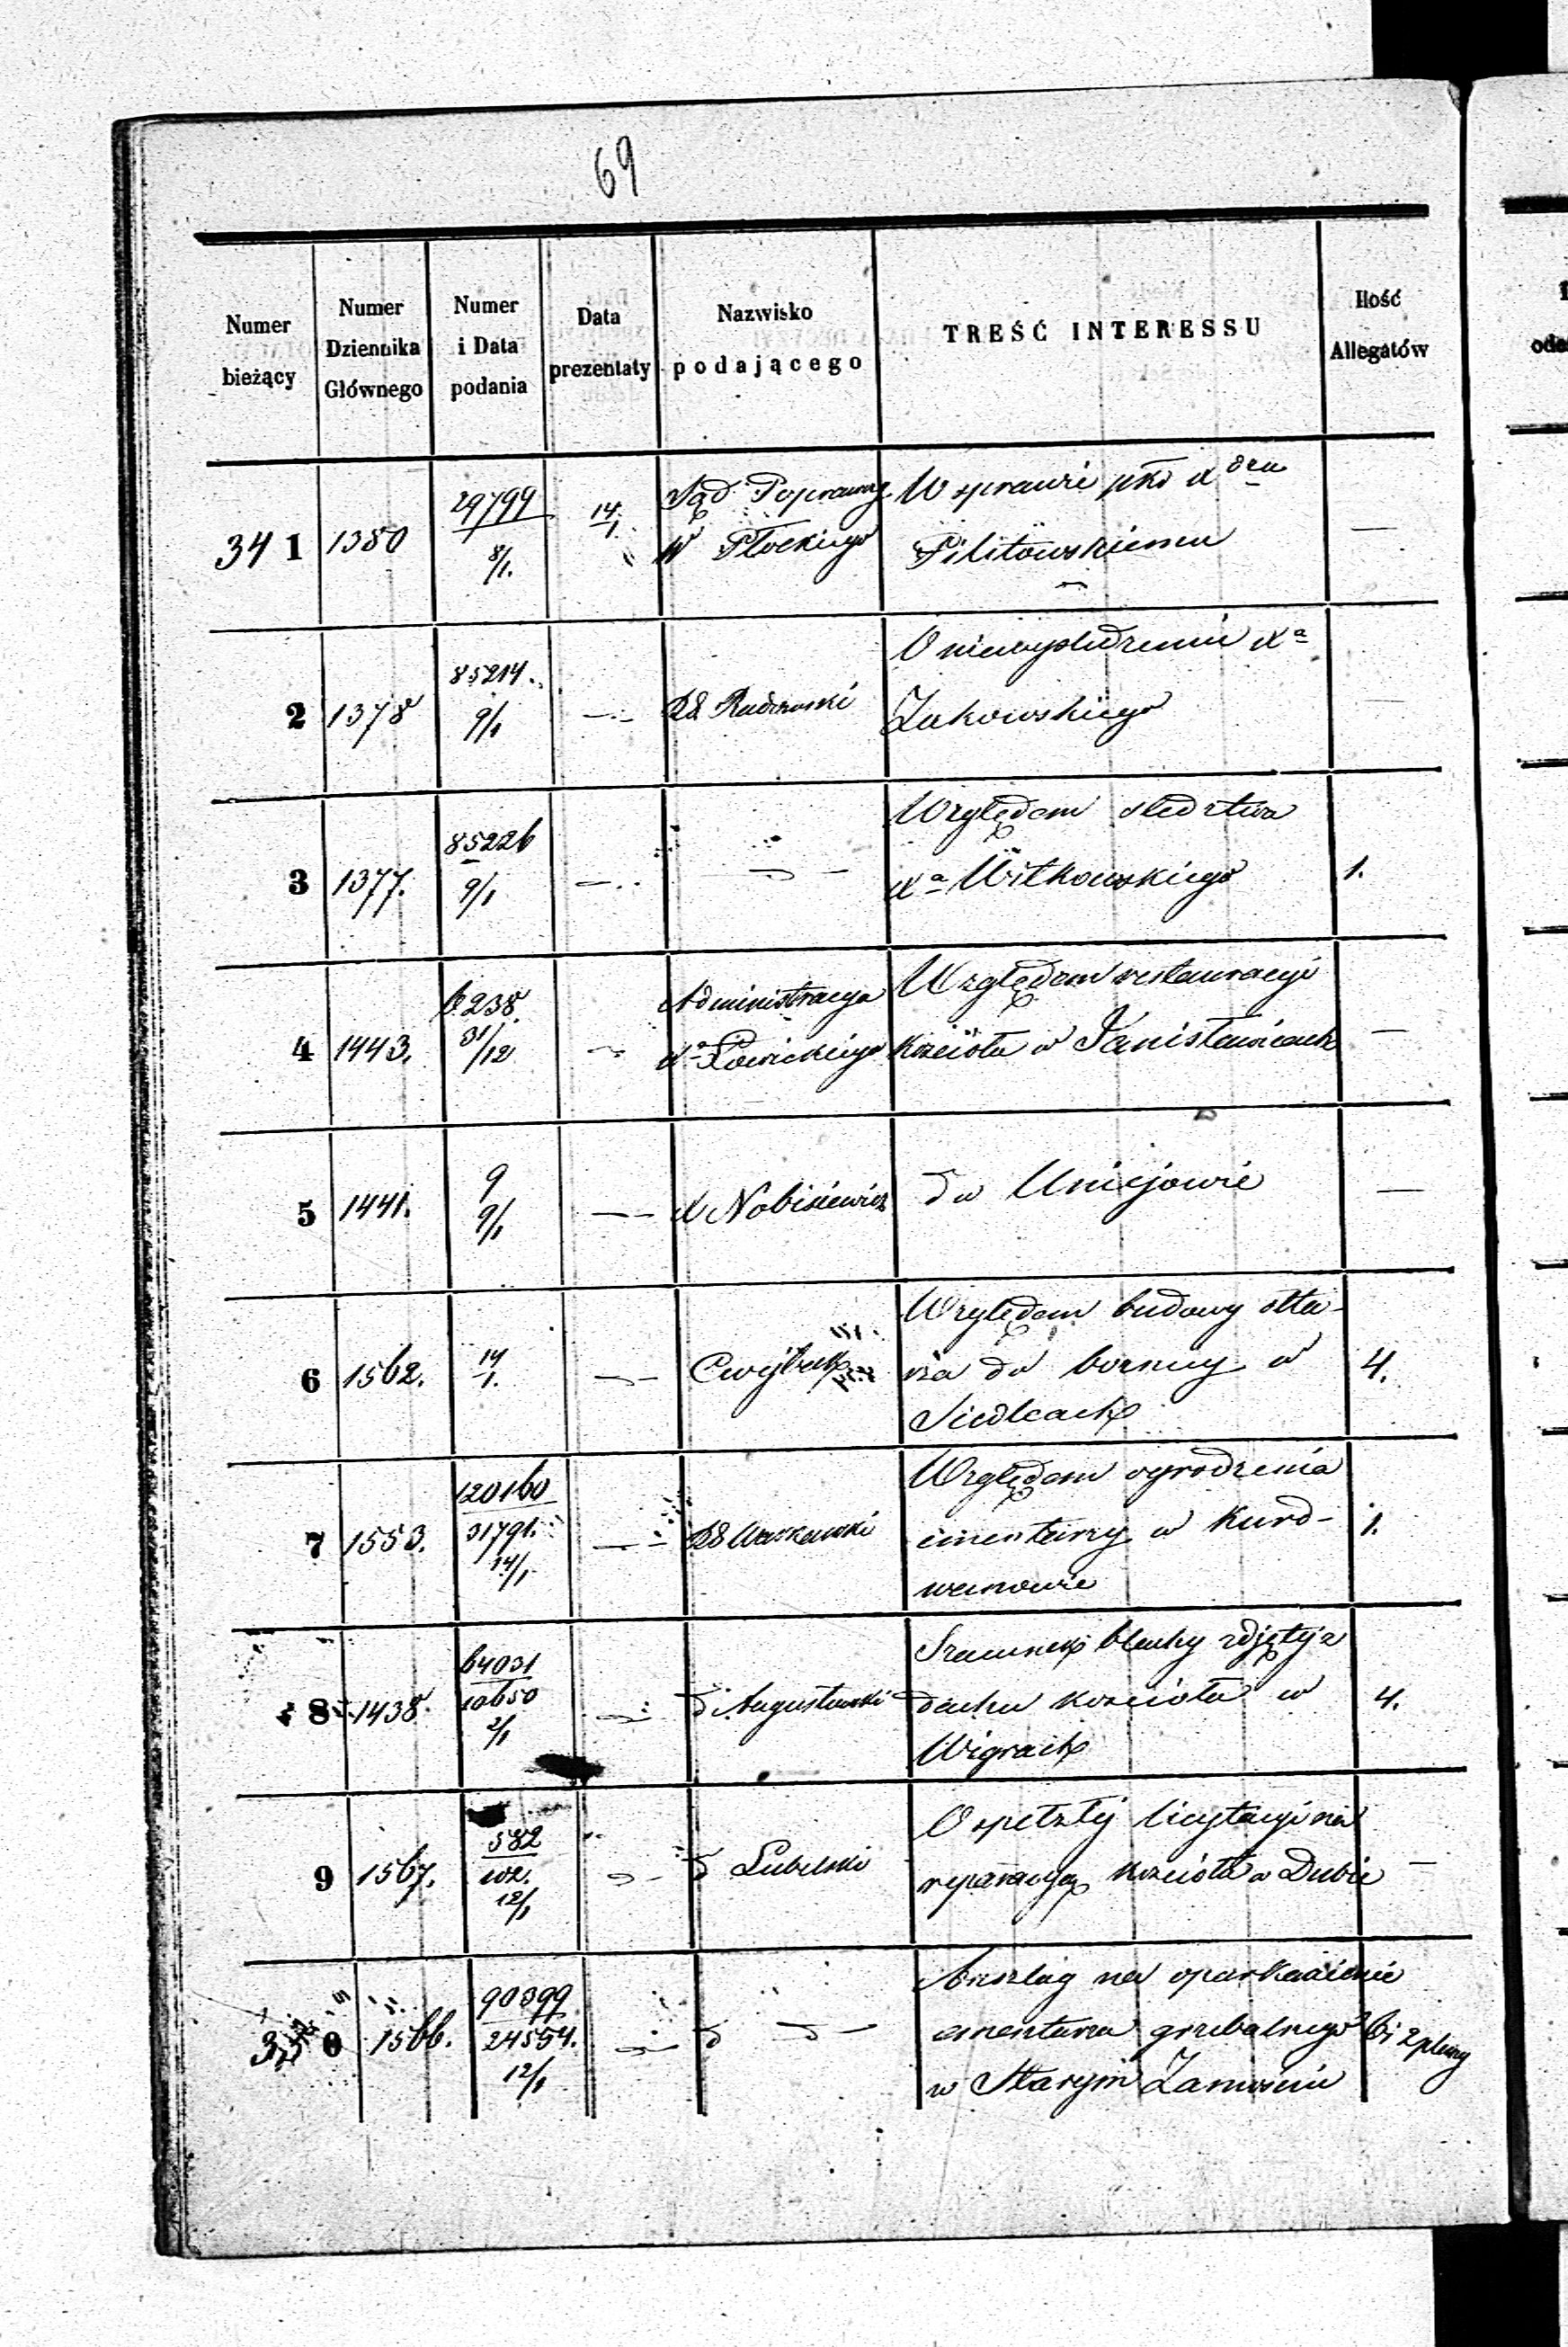 69
Numer bieżący | Numer Dziennika Głównego | Numer i Data podania | Data prezentaty | Nazwisko podającego | TREŚĆ INTERESSU | Ilość Allegatów
341 | 1380 | 29799 8/1. | 14/1. | Sąd Poprawczy W Płockiego | W sprawie pko Xdzu Pilitowskiemu | —
2 | 1378 | 85214. 9/1 | — | RG Radomski | O niewyśledzeniu Xa Żukowskiego
3 | 1377. | 85226 9/1 | — | — | Względem śledztwa Xa Witkowskiego | 1.
4 | 1443. | 6238. 31/12 | — | Administracya Xa Łowickiego | Względem restauracyi kościoła w Janisławicach | —
5 | 1441. | 9 9/1 | — | X Nobisiewicz | do w Uniejowie | —
6 | 1562. | 14/1. | — | Ćwiębak | Względem budowy ołtarza do bożnicy w Siedlcach | 4.
7 | 1553. | 120160 31791. 14/1 | — | RG Warszawski | Względem ogrodzenia cmentarzy w Kurdwanowie | 1.
8 | 1438. | 64031 10650 2/1 | — | d Augustowski | Szacunek blachy zdjętej z dachu kościoła w Wigrach | 4.
9 | 1567. | 582 102. 12/1 | — | d Lubelski | O spełzłej licytacyi na reparacyą kościoła w Dubie | —
350 | 1566. | 90399 24554. 12/1 | — | d — | Anszlag na oparkanienie cmentarza grzebalnego w Starym Zamościu | 6 i 2 plany